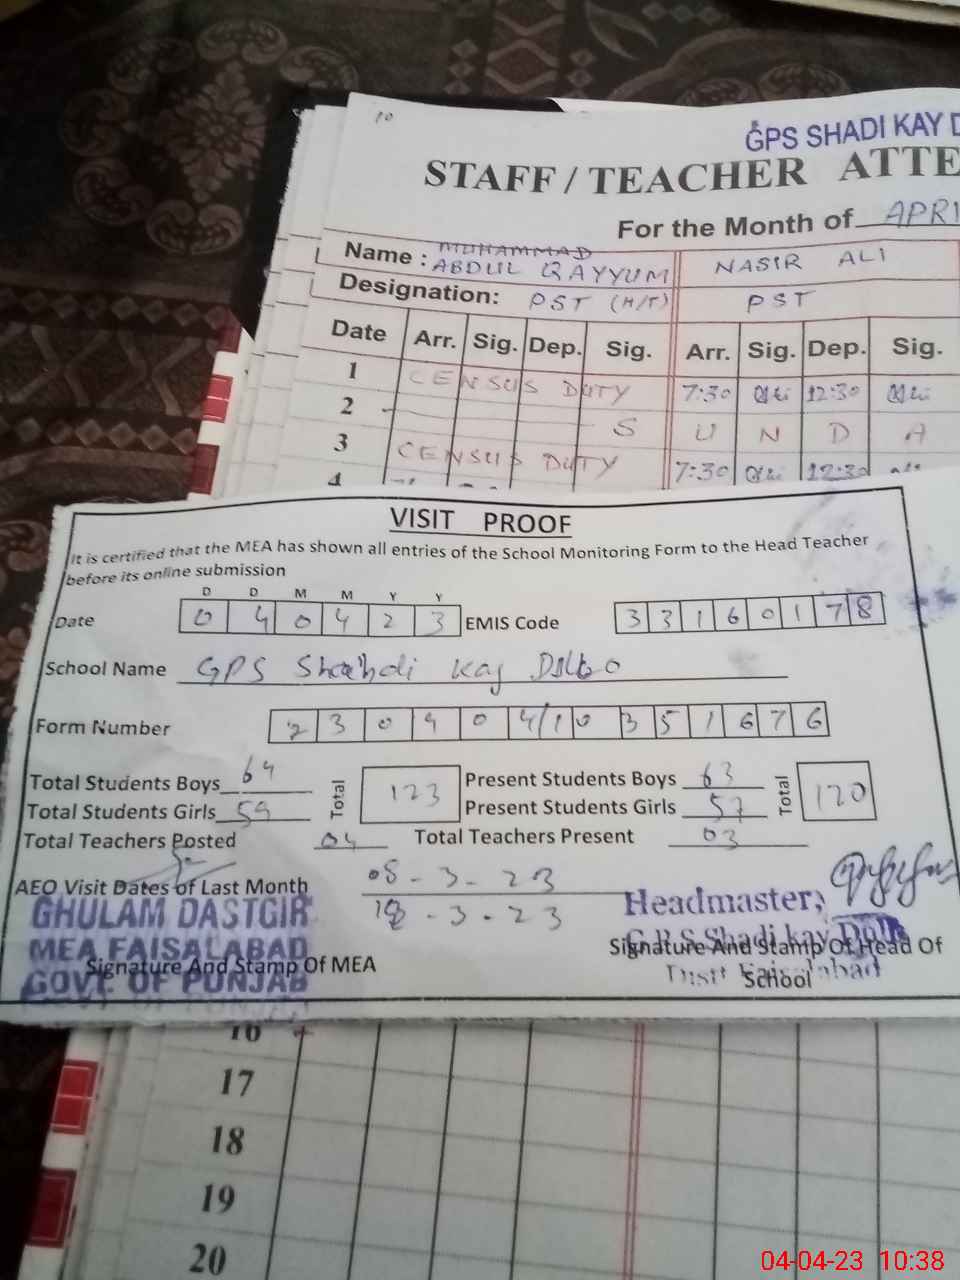 10
GPS SHADI KAY D
STAFF / TEACHER ATTE
For the Month of APRI
Name : MUHAMMAD ABDUL QAYYUM NASIR ALI
Designation: PST (H/T) PST
Date Arr. Sig. Dep. Sig. Arr. Sig. Dep. Sig.
1 CENSUS DUTY 7:30 12:30
2 S U N D A
3 CENSUS DUTY 7:30 12:30
4
VISIT PROOF
It is certified that the MEA has shown all entries of the School Monitoring Form to the Head Teacher
before its online submission
D D M M Y Y
Date 0 4 0 4 2 3 EMIS Code 3 3 1 6 0 1 7 8
School Name GPS Shahdi Kay
Form Number 2 3 0 4 0 4/1 0 3 5 1 6 7 6
Total Students Boys 64 Total 123 Present Students Boys 63 Total 120
Total Students Girls 59 Present Students Girls 57
Total Teachers Posted 04 Total Teachers Present 03
AEO Visit Dates of Last Month 08-3-23
18-3-23
GHULAM DASTGIR
MEA FAISALABAD
GOVT. OF PUNJAB
Signature And Stamp Of MEA
Headmaster,
G.P.S Shadi kay
Distt Faisalabad
Signature And Stamp Of Head Of
School
16
17
18
19
20
04-04-23 10:38